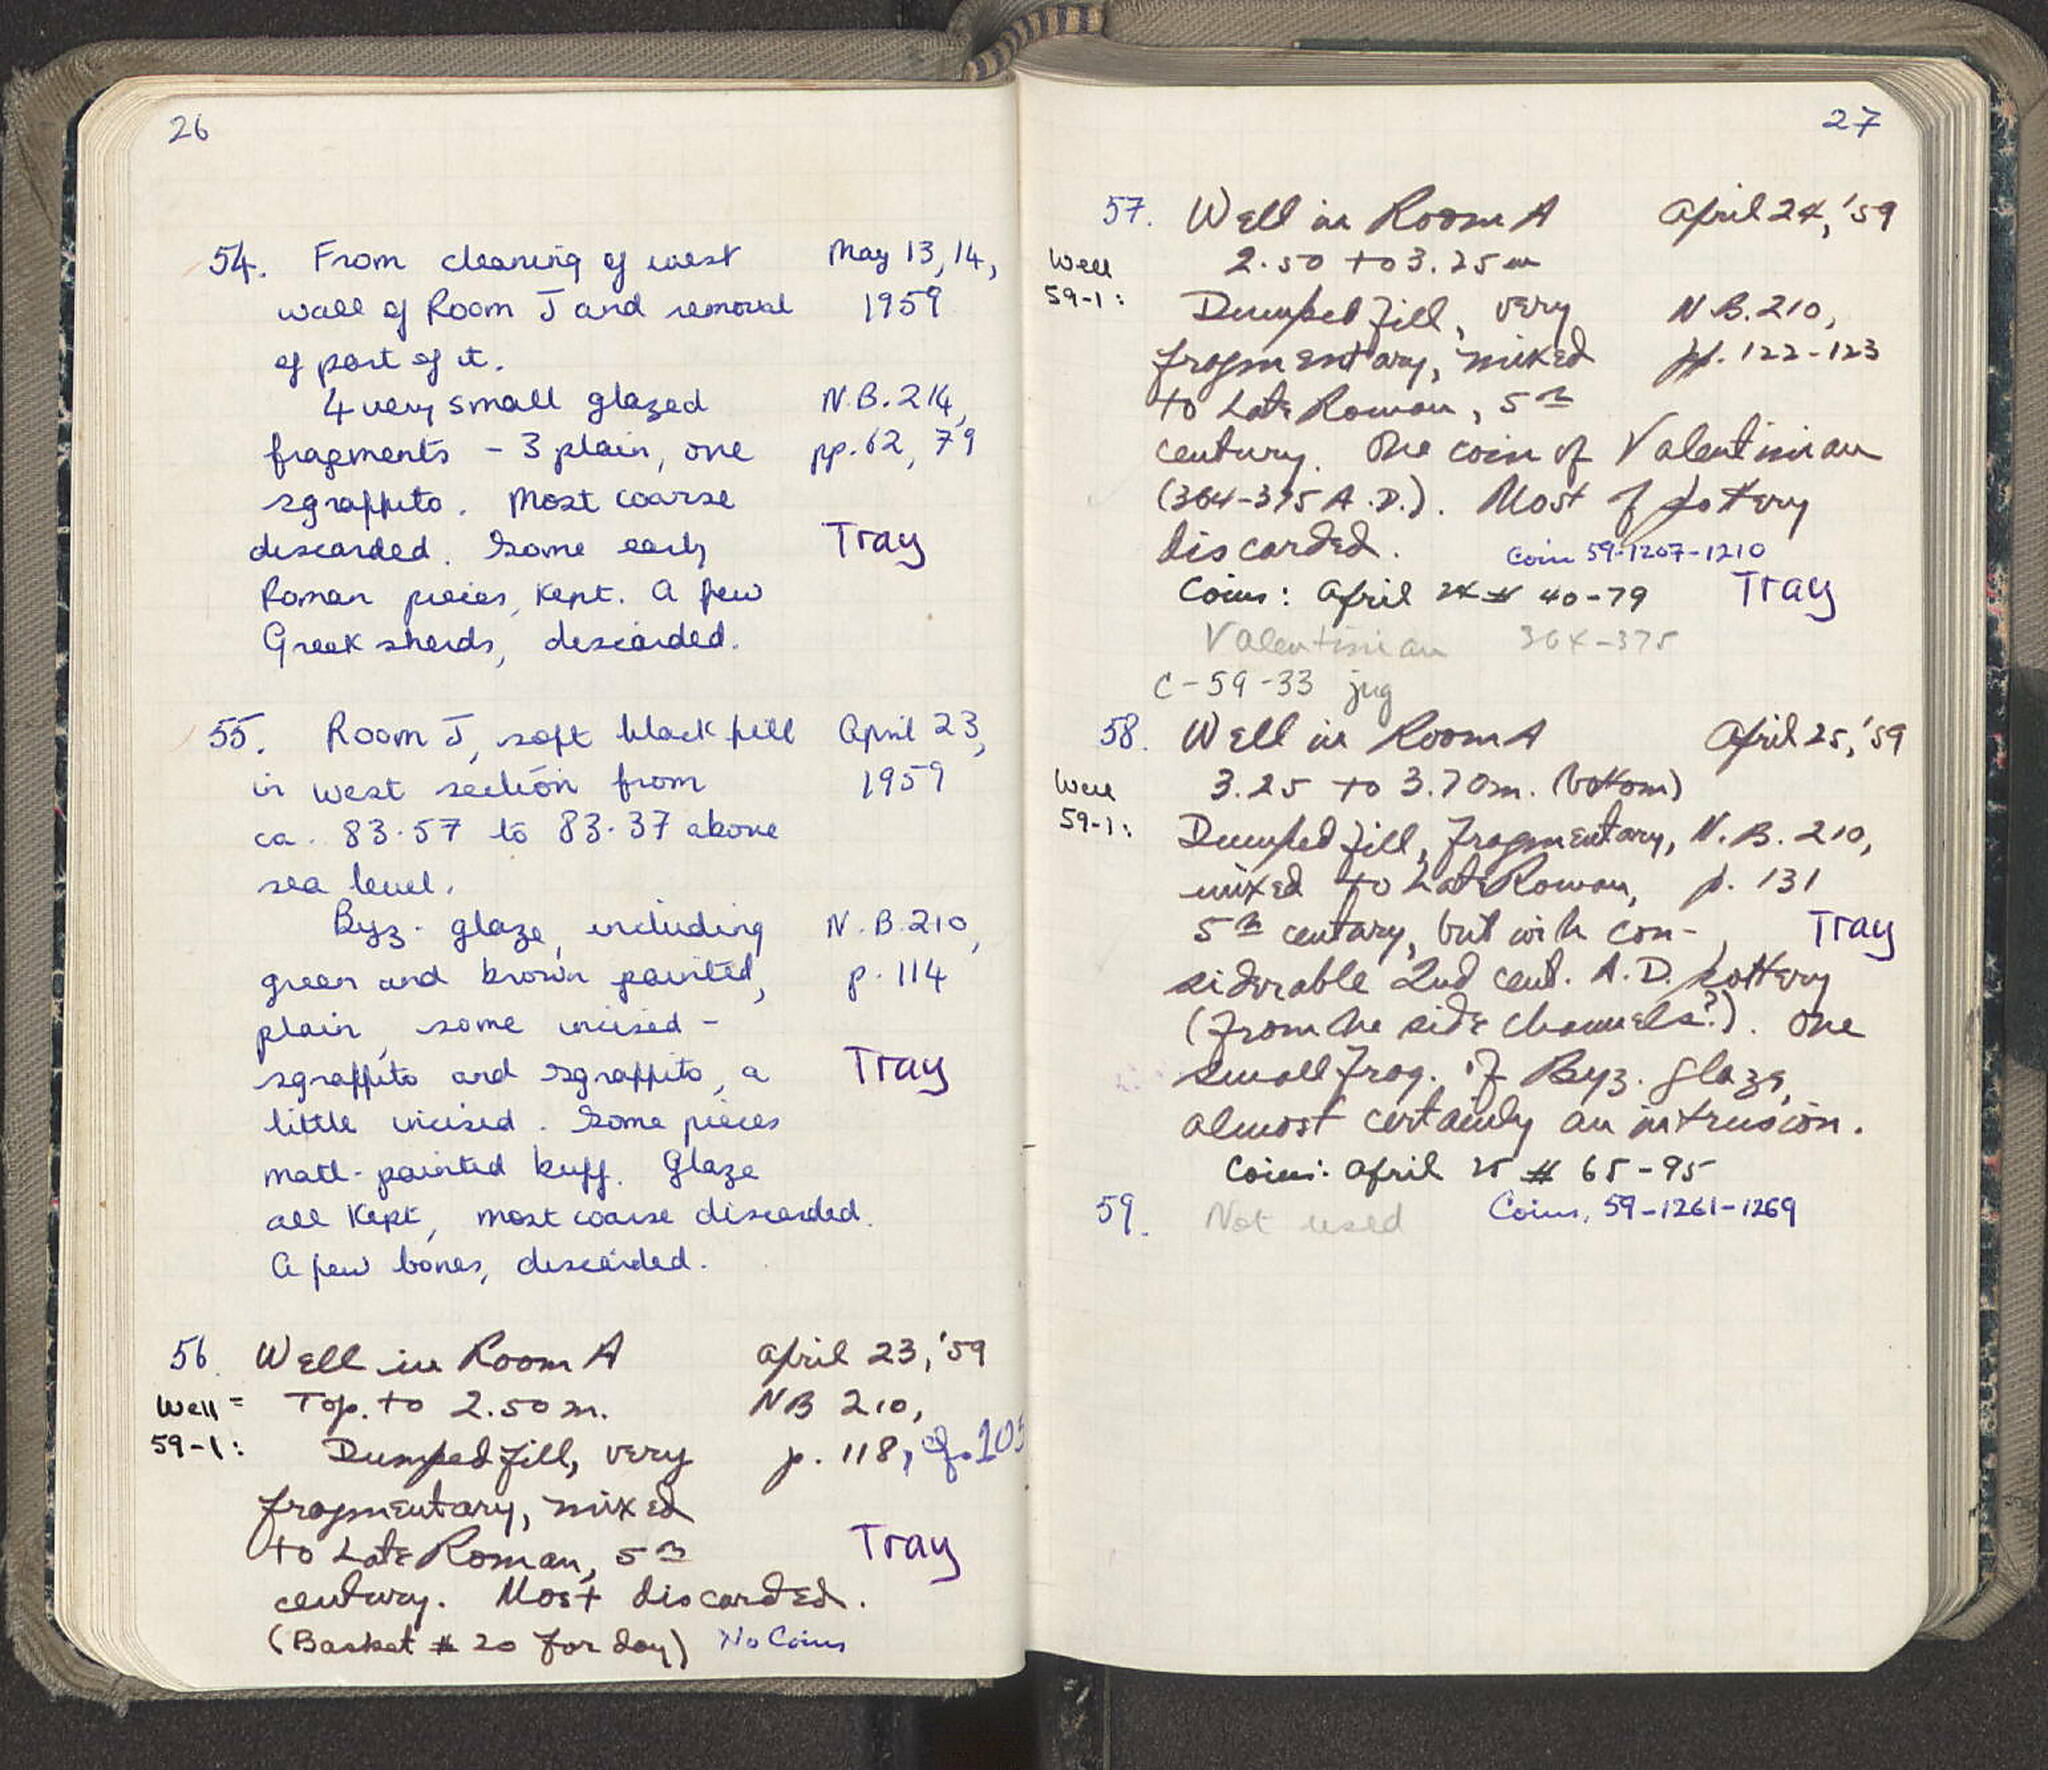 26
54. From cleaning of west May 13, 14,
wall of Room J and removal 1959
of part of it.
4 very small glazed N.B. 214,
fragments - 3 plain, one pp. 62, 79
sgraffito. Most coarse
discarded. Some early Tray
Roman pieces, kept. A few
Greek sherds, discarded.
55. Room J, soft black fill April 23,
in west section from 1959
ca. 83.57 to 83.37 above
sea level.
Byz. glaze, including N.B. 210,
green and brown painted, p. 114
plain, some incised-
sgraffito and sgraffito, a Tray
little incised. Some pieces
matt-painted buff. Glaze
all kept, most coarse discarded.
A few bones, discarded.
56. Well in Room A April 23, '59
Well = Top. to 2.50 m. NB 210,
59-1: Dumped fill, very p. 118, cf. 105
fragmentary, mixed
to Late Roman, 5th Tray
century. Most discarded.
(Basket # 20 for day) No Coins
27
57. Well in Room A April 24, '59
Well 2.50 to 3.25 m
59-1: Dumped fill, very N.B. 210,
fragmentary, mixed pp. 122-123
to Late Roman, 5th
century. One coin of Valentinian
(364-375 A.D.). Most of pottery
discarded. Coin 59-1207-1210
Coins: April 24 # 40-79 Tray
Valentinian 364-375
C-59-33 jug
58. Well in Room A April 25, '59
Well 3.25 to 3.70 m. (bottom)
59-1: Dumped fill, fragmentary, N.B. 210,
mixed to Late Roman, p. 131
5th century, but with con- Tray
siderable 2nd cent. A.D. pottery
(from the side channels?). One
small frag. of Byz. glaze,
almost certainly an intrusion.
Coins: April 25 # 65-95
59. Not used Coins, 59-1261-1269